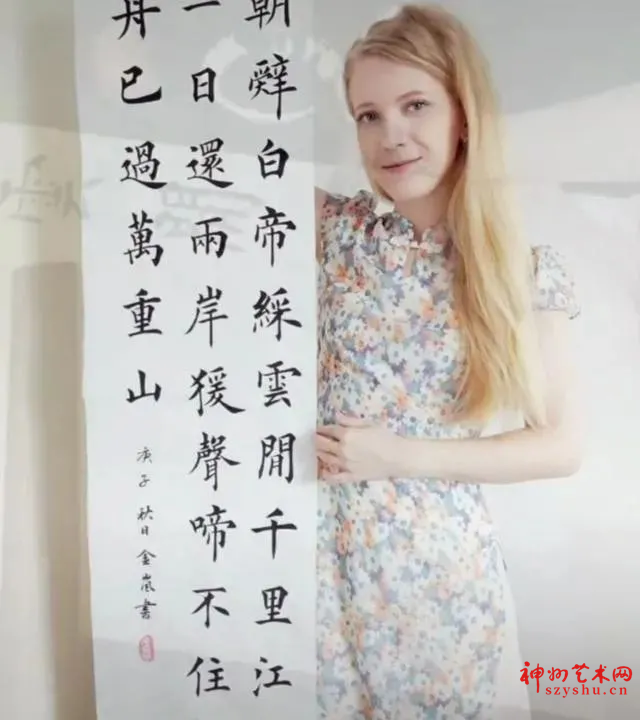 朝辤白帝綵雲閒千里江
一日還兩岸猨聲啼不住
舟已過萬重山
庚子秋日金嵐書
神州艺术网
szyshu.cn